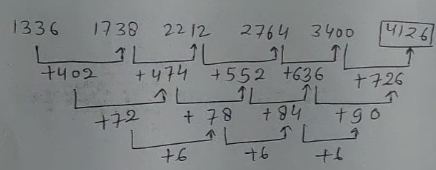 1336 1738 2212 2764 3400 4126
+402 +474 +552 +636 +726
+72 +78 +84 +90
+6 +6 +6